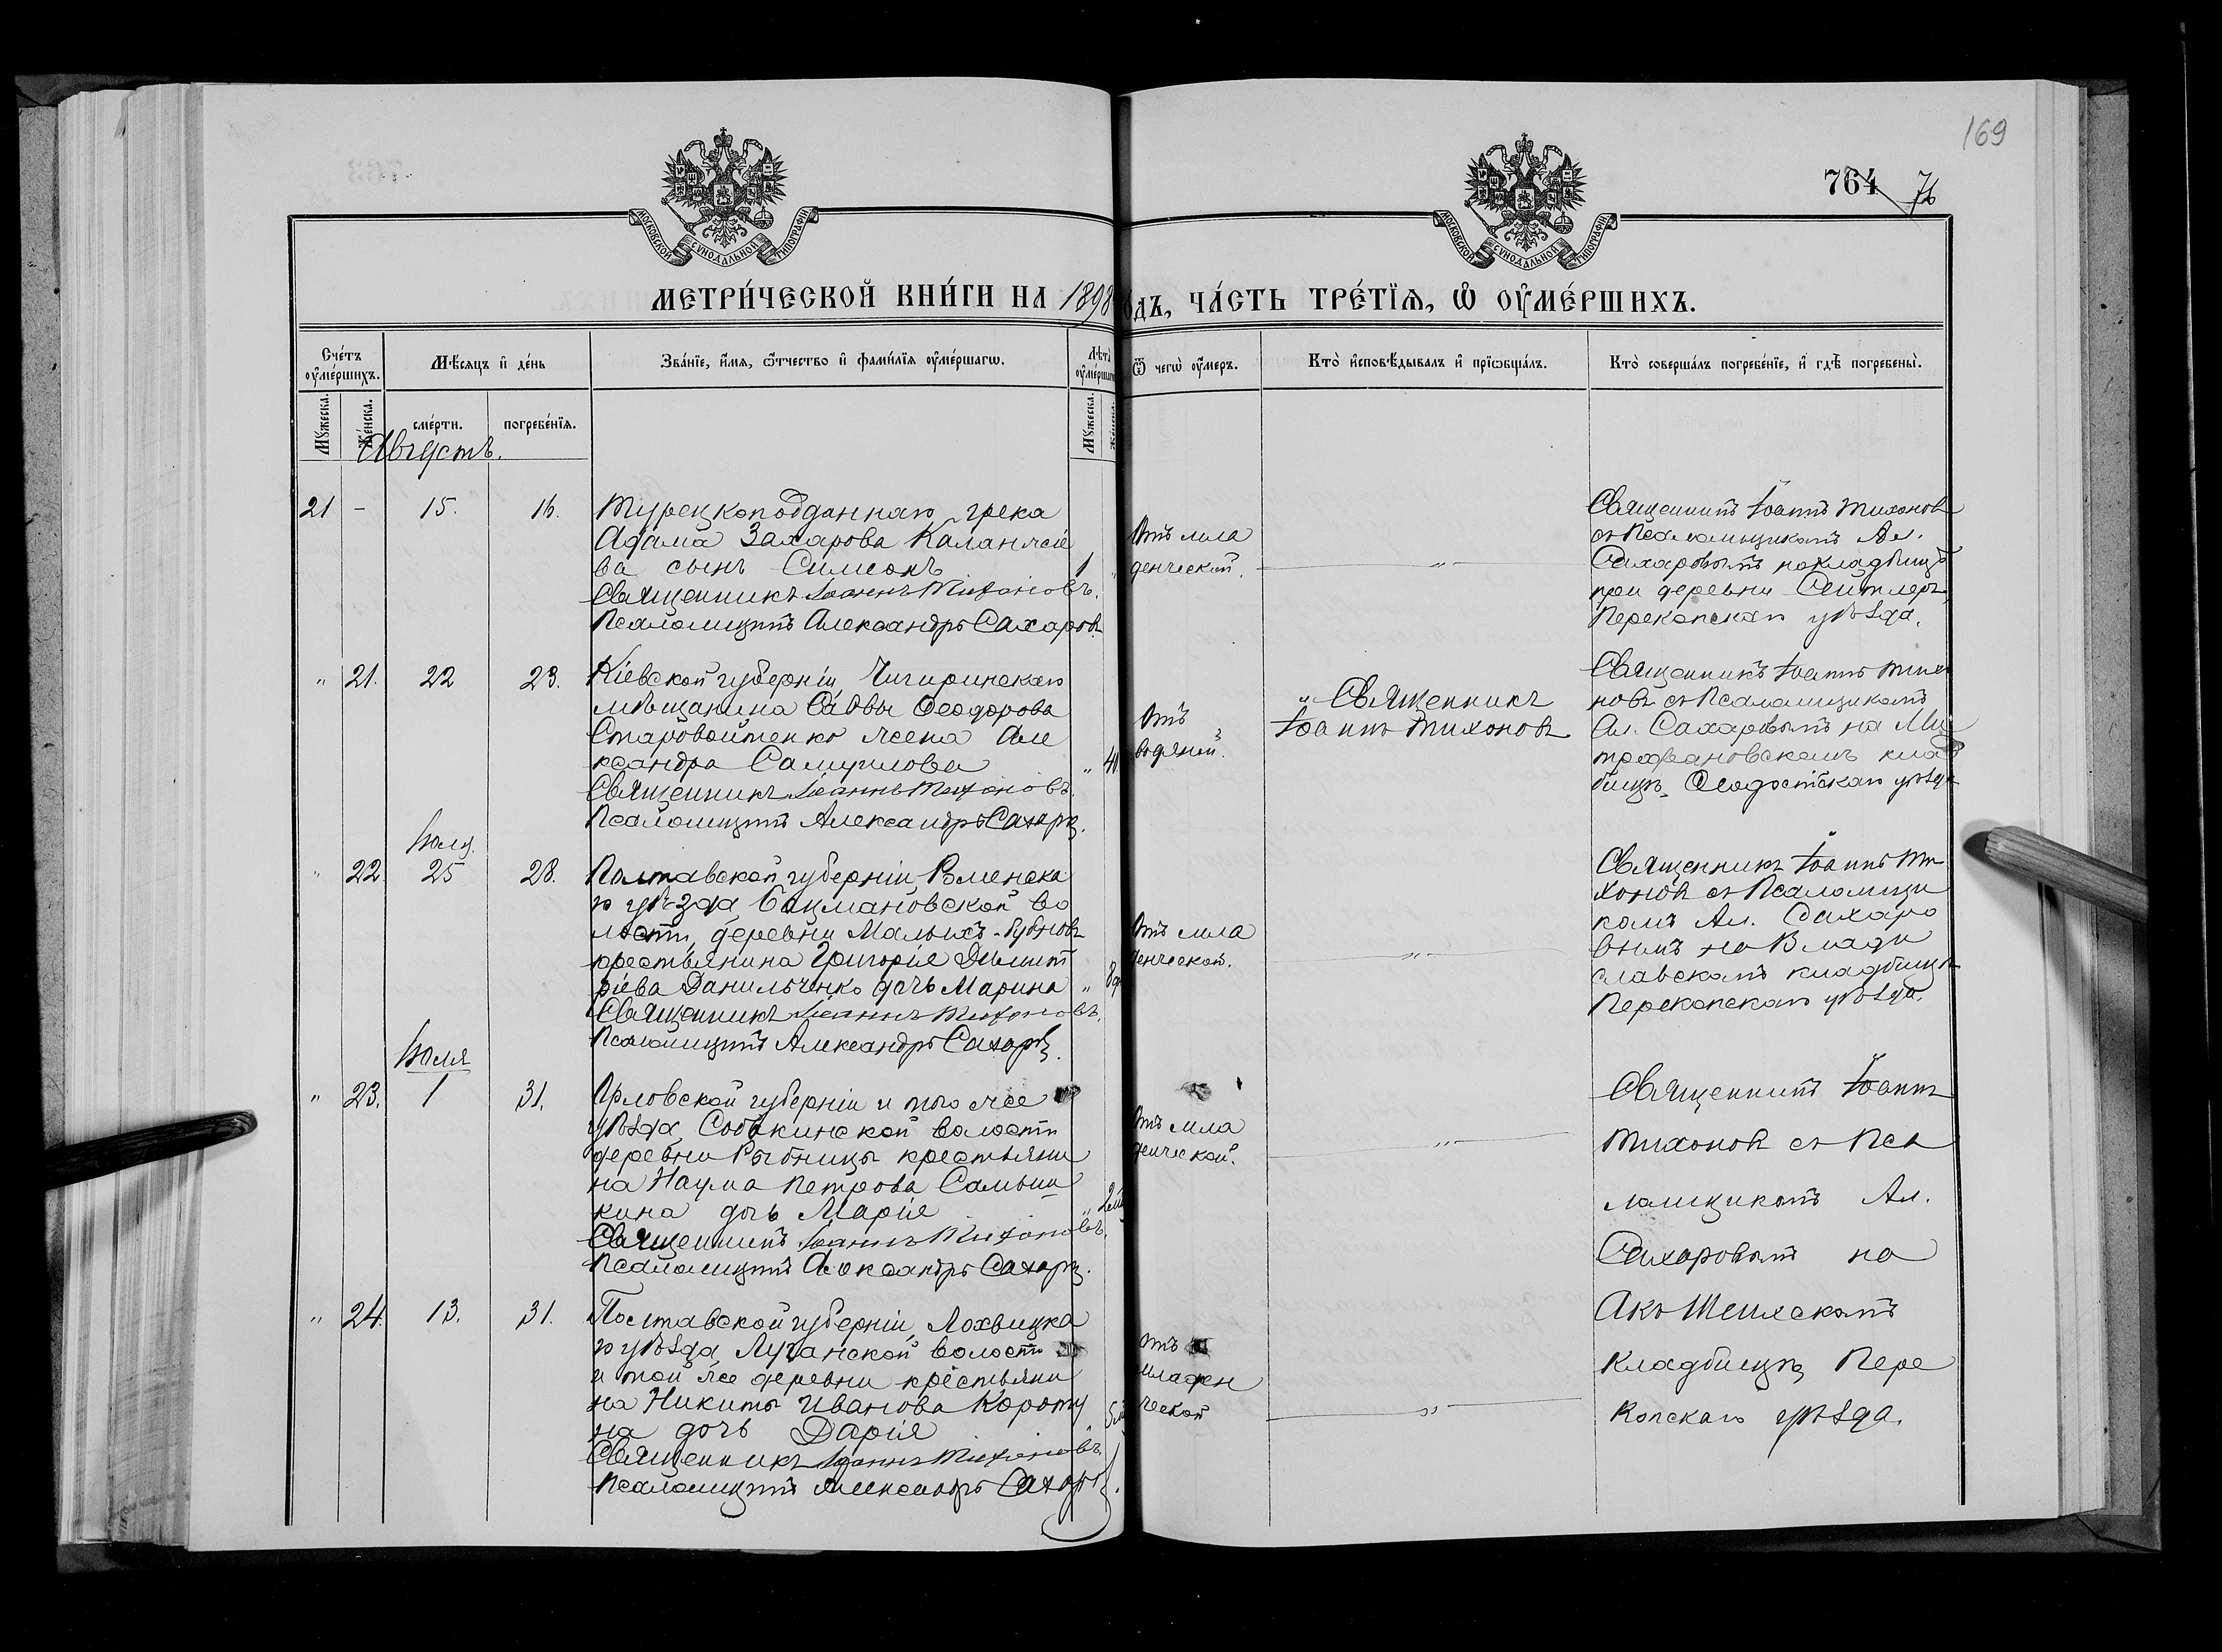 169
764 76
МОСКОВСКОЙ СѴНОДАЛЬНОЙ ТИПОГРАФІИ
МОСКОВСКОЙ СѴНОДАЛЬНОЙ ТИПОГРАФІИ
МЕТРИ́ЧЕСКОЙ КНИ́ГИ НА 1898 одъ, ЧА́СТЬ ТРЕ́ТІѦ, Ѡ ОУ҆МЕ́РШИХЪ.
Сче́тъ оу҆ме́ршихъ.
Мѣ́сяцъ и҆ де́нь
Зва́ніе, и҆́мя, ѻ҆́тчество и҆ фами́лїя оу҆ме́ршагѡ.
Лѣ́та оу҆ме́ршаг
Ѿ чегѡ̀ оу҆́меръ.
Кто̀ и҆сповѣ́дывалъ и҆ прїѡбща́лъ.
Кто̀ соверша́лъ погребе́нїе, и҆ гдѣ̀ погребены̀.
Му́жеска.
Же́нска.
сме́рти.
погребе́нїя.
Му́жеска.
Августъ.
21 - 15. 16.
Турецкоподданнаго грека
Адама Захарова Каланчіе
ва сынъ Симеонъ 1
Священникъ Іоаннъ Тихоновъ.
Псаломщикъ Александръ Сахаровъ
Отъ мла
денческой.
„
Священникъ Іоаннъ Тихоновъ
съ Псаломщикомъ Ал.
Сахаровымъ на кладбищѣ
при деревни Сейтлеръ,
Перекопскаго уѣзда.
„ 21. 22 23.
Кіевской губерніи, Чигиринскаго
мѣщанина Саввы Ѳеодорова
Старовойтенко жена Але
ксандра Самуилова „ 40
Священникъ Іоаннъ Тихоновъ.
Псаломщикъ Александръ Сахаровъ.
Отъ
водяной.
„ Священникъ
Іоаннъ Тихоновъ
Священникъ Іоаннъ Тихо
новъ съ Псаломщикомъ
Ал. Сахаровымъ на Ми
трофановскомъ клад
бищѣ, Ѳеодосійскаго уѣзда
Іюля.
„ 22. 25 28.
Полтавской губерніи, Роменска
го уѣзда, волости, деревни Малыхъ-Бубновъ
крестьянина Григорія Димит
ріева Данильченко дочь Марина „
Священникъ Іоаннъ Тихоновъ.
Псаломщикъ Александръ Сахаровъ.
Отъ мла
денческой.
„
Священникъ Іоаннъ Ти
хоновъ съ Псаломщи
комъ Ал. Сахаро
вымъ на Влади
славскомъ кладбищѣ
Перекопскаго уѣзда.
Іюля
„ 23. 1 31.
Орловской губерніи и того же
уѣзда, Собакинской волости
деревни Рыбницы крестьяни
на Наума Петрова Самыш
кина дочь Марія „
Священникъ Іоаннъ Тихоновъ.
Псаломщикъ Александръ Сахаровъ.
Отъ мла
денческой.
„
Священникъ Іоаннъ
Тихоновъ съ Пса
ломщикомъ Ал.
Сахаровымъ на
Акъ Шеихскомъ
кладбищѣ, Пере
копскаго уѣзда.
„ 24. 13. 31.
Полтавской губерніи, Лохвицка
го уѣзда, Луганской волости
и той же деревни крестьяни
на Никиты Иванова Короту
на дочь Дарія „
Священникъ Іоаннъ Тихоновъ.
Псаломщикъ Александръ Сахаровъ.
Отъ
младен
ческой
„